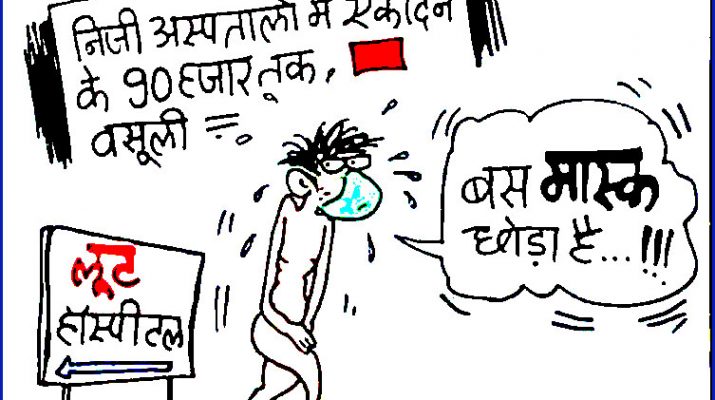 निजी अस्पतालों में एकदिन
के 90 हजार तक,
वसूली
बस मास्क
छोड़ा है...!!!
लूट
हॉस्पीटल